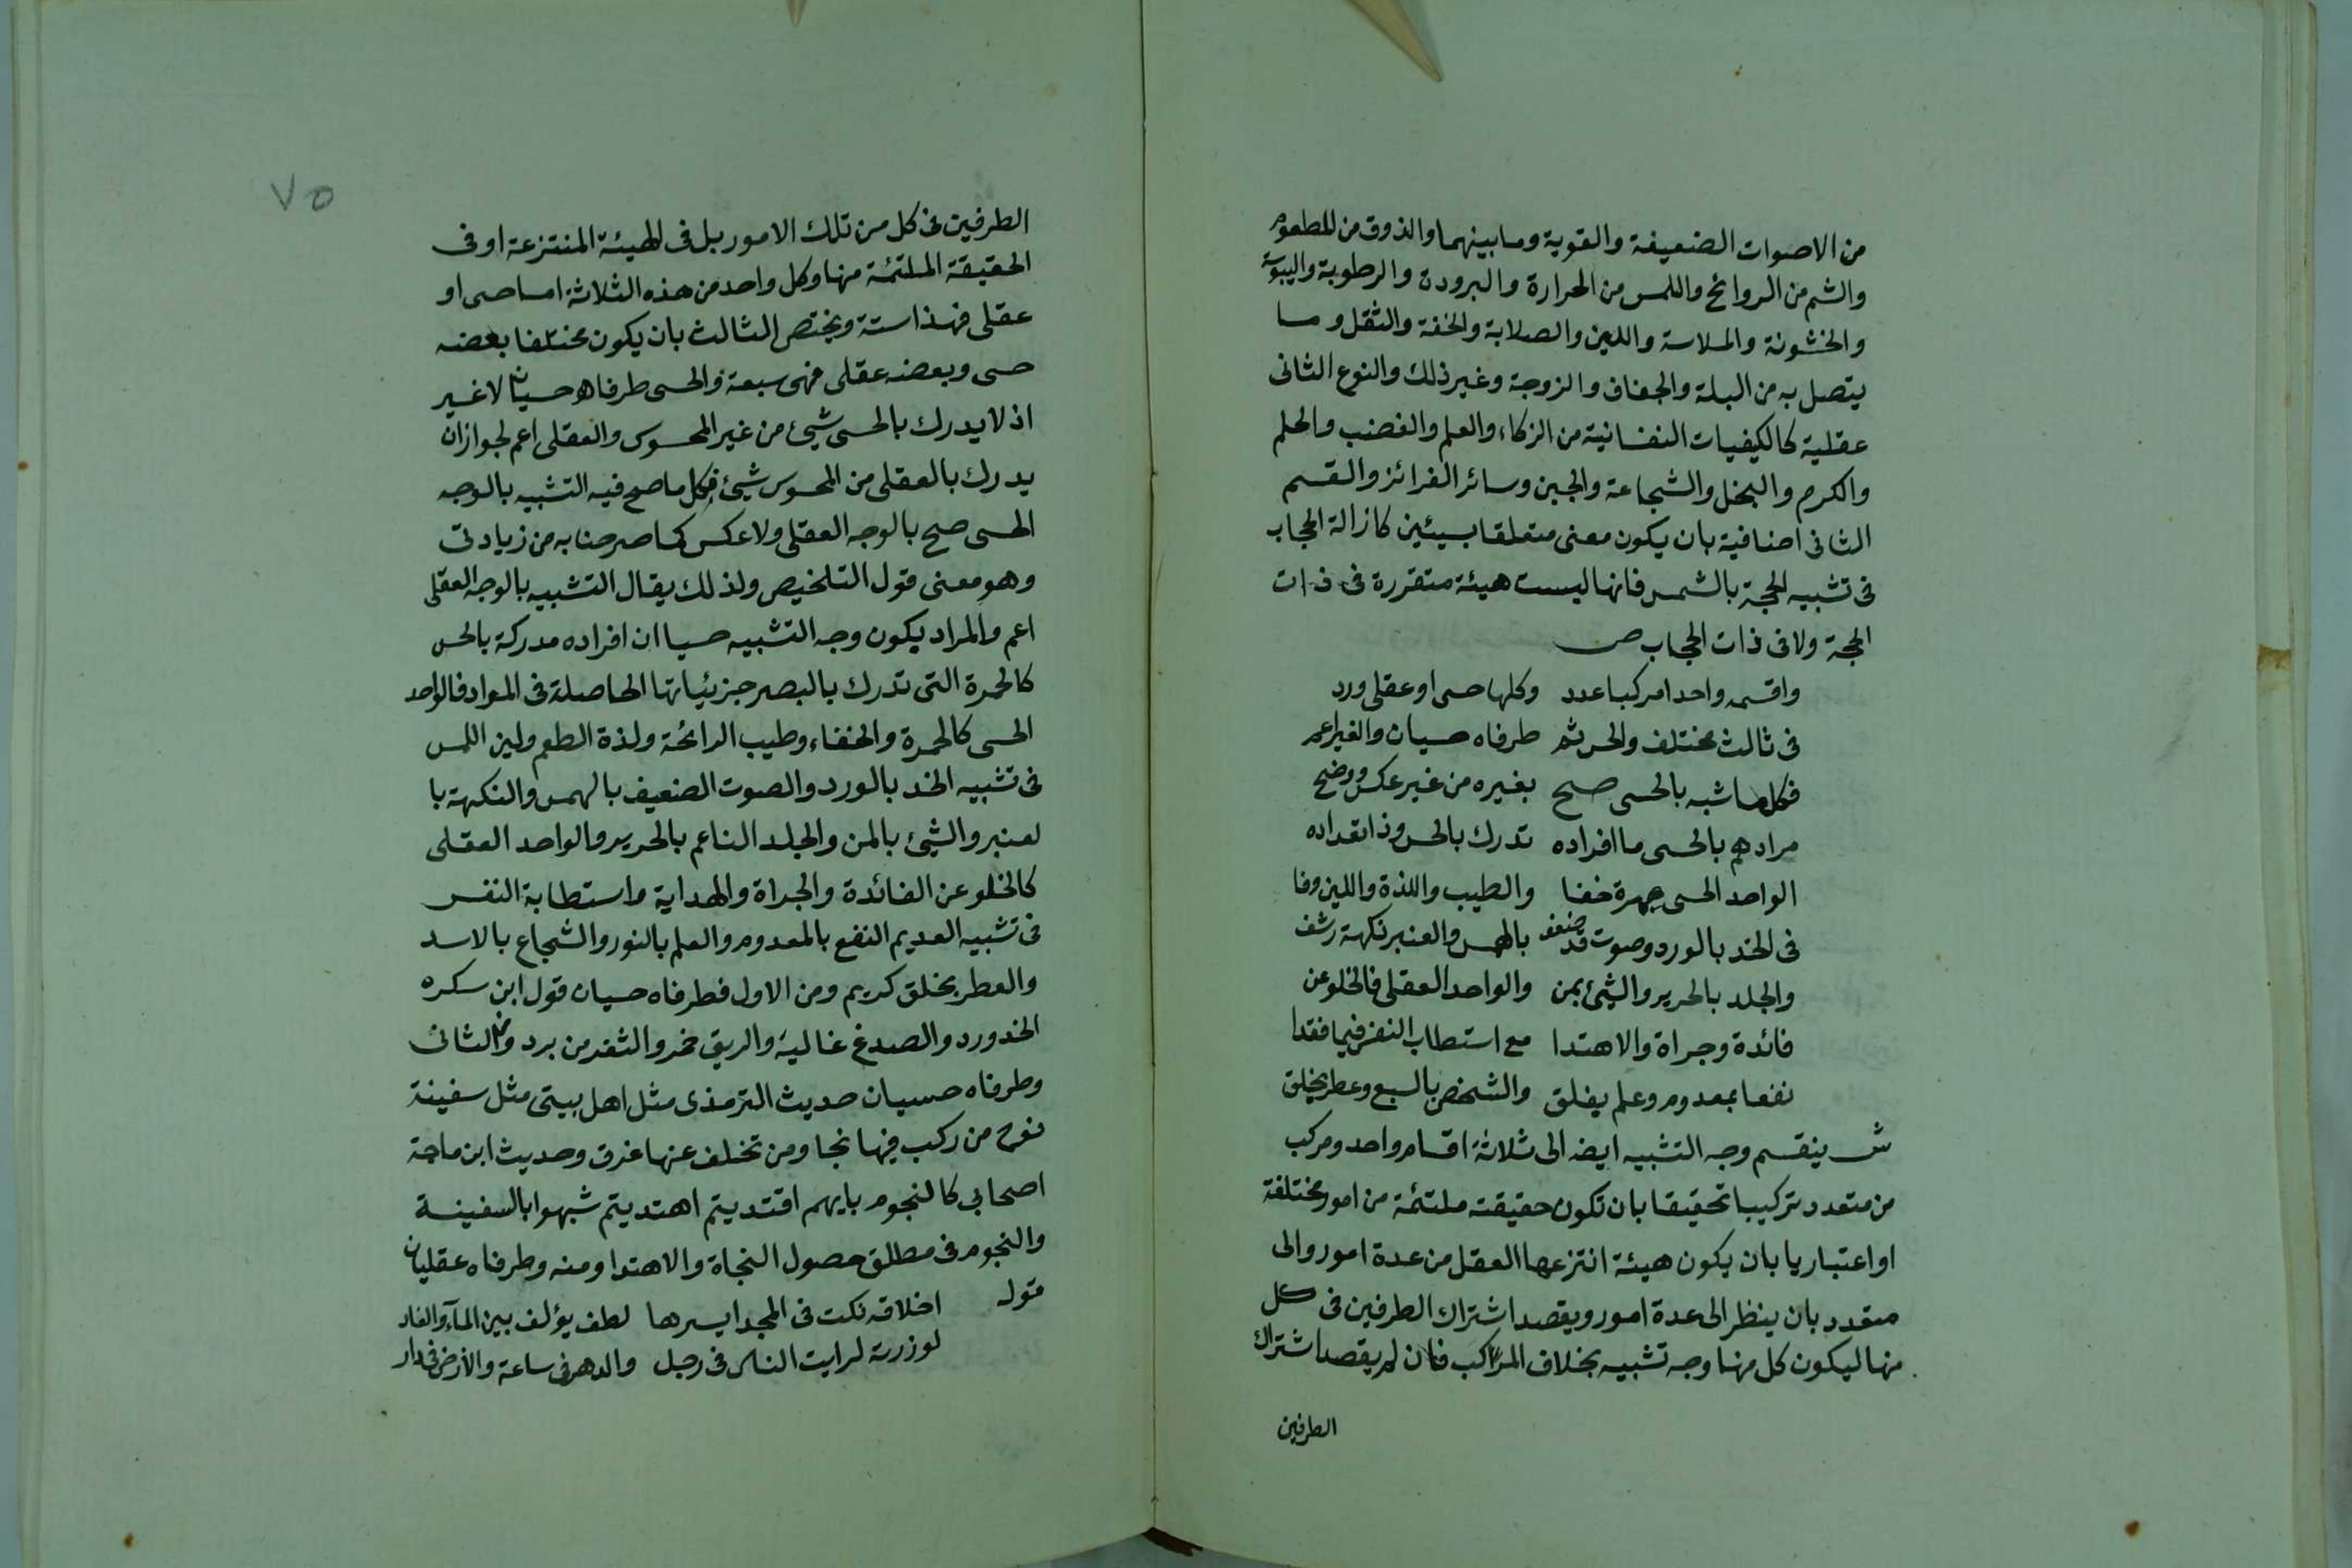 من الاصوات الضعيفة والقوية وما بينهما والذوق من المطعوم
والشم من الروائح واللمس من الحرارة والبرودة والرطوبة واليبوسة
والخشونة والملاسة واللين والصلابة والخفة والثقل وما
يتصل به من البلة والجفاف والزوجة وغير ذلك والنوع الثانى
عقلية كالكيفيات النفسانية من الزكاء والعلم والغضب والحلم
والكرم والبخل والشجاعة والجبن وسائر الغرائز والقسم
الثانى اضافية بان يكون معنى متعلقا بسيئين كازالة الحجاب
فى تشبيه الحجة بالشمس فانها ليست هيئة متقررة فى ذات
الحجة ولا فى ذات الحجاب ص
واقسمه واحدا مركبا عدد وكلها حسى او عقلى ورد
فى ثالث مختلف والحس ثم طرفاه حسيان والغير اعم
فكل ما شبه بالحسى صح بغيره من غير عكس ووضح
مرادهم بالحسى ما افراده تدرك بالحس وذا تعداده
الواحد الحسى حمرة خفا والطيب واللذة واللين وفا
فى الخد بالورد وصوت قد ضعف بالهمس والعنبر نكهة رشف
والجلد بالحرير والشيئ بمن والواحد العقلى فالخلو عن
فائدة وجراة والاهتدا مع استطاب النفس فيما فقدا
نفعا بمعدوم وعلم بفلق والشخص بالسبع وعطر بخلق
ش ينقسم وجه التشبيه ايضه الى ثلاثة اقسام واحد ومركب
من متعدد تركيبا تحقيقا بان تكون حقيقته ملتئمة من امور مختلفة
او اعتباريا بان يكون هيئة انتزعها العقل من عدة امور والى
متعدد بان ينظر الى عدة امور ويقصد اشتراك الطرفين فى كل
منها ليكون كل منها وجه تشبيه بخلاف المركب فان لم يقصد اشتراك
الطرفين
٧٥
الطرفين فى كل من تلك الامور بل فى الهيئة المنتزعة او فى
الحقيقة الملتئمة منها وكل واحد من هذه الثلاثة اما حسى او
عقلى فهذا ستة ويختص الثالث بان يكون مختلفا بعضه
حسى وبعضه عقلى فهى سبعة والحسى طرفاه حسيان لا غير
اذ لا يدرك بالحسى شيئ من غير المحسوس والعقلى اعم لجواز ان
يدرك بالعقلى من المحسوس شيئ فكل ما صح فيه التشبيه بالوجه
الحسى صح بالوجه العقلى ولا عكس كما صرحنا به من زيادتى
وهو معنى قول التلخيص ولذلك يقال التشبيه بالوجه العقلى
اعم والمراد يكون وجه التشبيه حسيا ان افراده مدركة بالحس
كالحمرة التى تدرك بالبصر جزئياتها الحاصلة فى المواد فالواحد
الحسى كالحمرة والخفاء وطيب الرائحة ولذة الطعم ولين اللمس
فى تشبيه الخد بالورد والصوت الضعيف بالهمس والنكهة با
لعنبر والشيئ بالمن والجلد الناعم بالحرير والواحد العقلى
كالخلو عن الفائدة والجراة والهداية واستطابة النفس
فى تشبيه العديم النفع بالمعدوم والعلم بالنور والشجاع بالاسد
والعطر بخلق كريم ومن الاول فطرفاه حسيان قول ابن سكره
الخد ورد والصدغ غالية والريق خمر والثغر من برد ومن الثانى
وطرفاه حسيان حديث الترمذى مثل اهل بيتى مثل سفينة
نوح من ركب فيها نجا ومن تخلف عنها غرق وحديث ابن ماجة
اصحابى كالنجوم بايهم اقتديتم اهتديتم شبهوا بالسفينة
والنجوم فى مطلق حصول النجاة والاهتدا ومنه وطرفاه عقليان
قوله اخلاقه نكت فى المجد ايسرها لطف يؤلف بين المآء والنار
لو زرته لرايت الناس فى رجل والدهر فى ساعة والارض فى دار